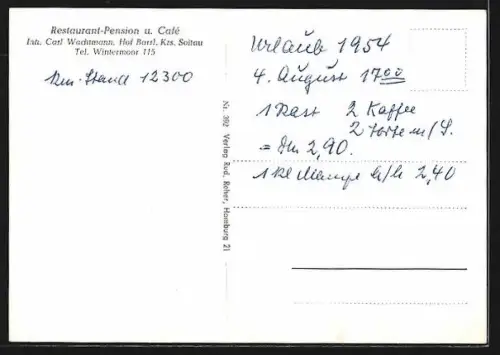 Restaurant-Pension u. Café
Inh. Carl Wachtmann, Hof Barrl, Krs. Soltau
Tel. Wintermoor 115
Km-Stand 12300
Nr. 392 Verlag Rud. Reher, Hamburg 21
Urlaub 1954
4. August 17 00
1 Rast 2 Kaffee
2 Torte m/S.
= Dm 2,90.
1 kl Mampe h/h 2,40